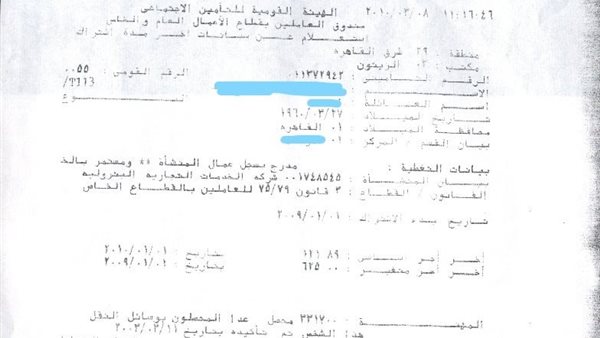 ١١:١٦:٤٦ ٢٠١٠/٠٣/٠٨ الهيئة القومية للتأمين الاجتماعى
صندوق العاملين بقطاع الأعمال العام والخاص
استعلام عن بيانات اخر مدة اشتراك
منطقة : ٢٩ شرق القاهره
مكتب : ٠٢ الزيتون
الرقم التأمينى : ٠١١٣٧٢٩٤٢ الرقم القومى : ٠٠٥٥
الاسم : /T113
اسم العائلة : النوع
تاريخ الميلاد : ١٩٦٠/٠٣/٢٧
محافظة الميلاد : ٠١ القاهره
بيان القسم / المركز : ٠١
بيانات التغطية : مدرج بسجل عمال المنشأة ** ومستمر بالخ
بيان المنشأة : ٠٠١٧٤٨٥٤٥ شركه الخدمات التجاريه البتروليه
القانون / القطاع : ٣ قانون ٧٥/٧٩ للعاملين بالقطاع الخاص
تاريخ بدء الاشتراك : ٢٠٠٩/٠١/٠١
أخر أجر أساسى : ٨٩ بتاريخ : ٢٠١٠/٠١/٠١
أخر أجر متغير : ٦٢٥ ٠٠ بتاريخ : ٢٠٠٩/٠١/٠١
المهنة : ٣٣١٧٠٠ محصل عدا المتصلون بوسائل النقل
هذا الشخص تم تأكيده بتاريخ ٢٠٠٣/٠٢/١١